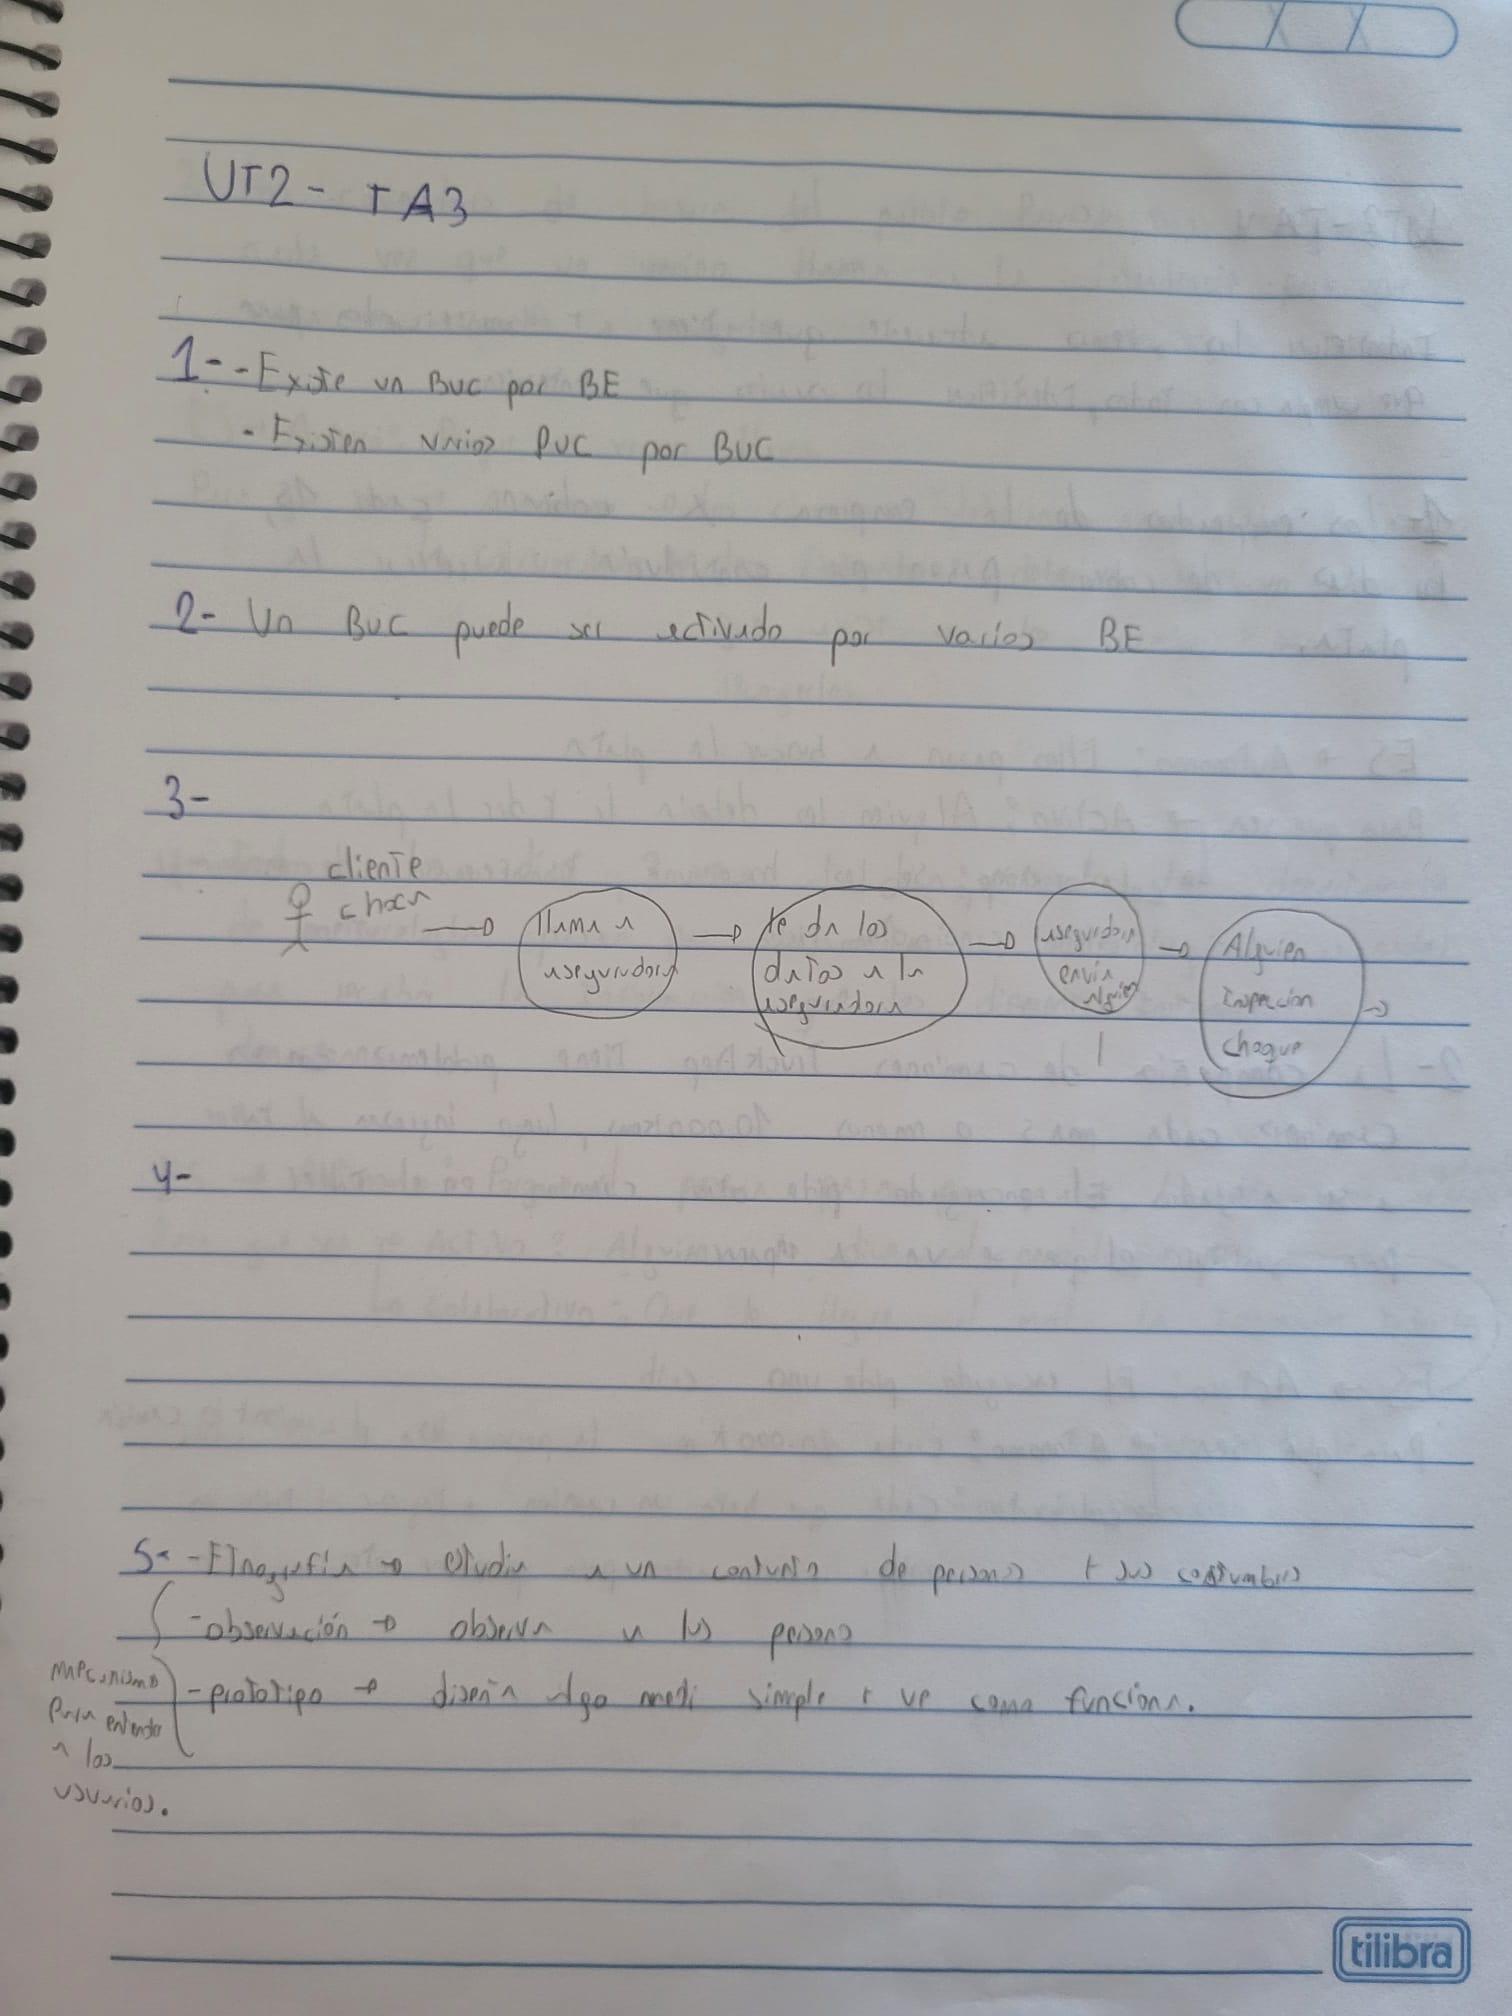 UT2 - TA3
1- - Existe un BUC por BE
- Existen varios PUC por BUC
2- Un BUC puede ser activado por varios BE
3-
cliente
choca
llama a
aseguradora
te da los
datos a la
aseguradora
aseguradora
envia
alguien
Alguien
inspeccion
choque
4-
5- - Etnografia → estudia a un conjunto de personas + sus costumbres
- observación → observa a las persona
- prototipo → diseña algo medi simple + ve como funciona.
mecanismo
para entender
a los
usuarios.
tilibra